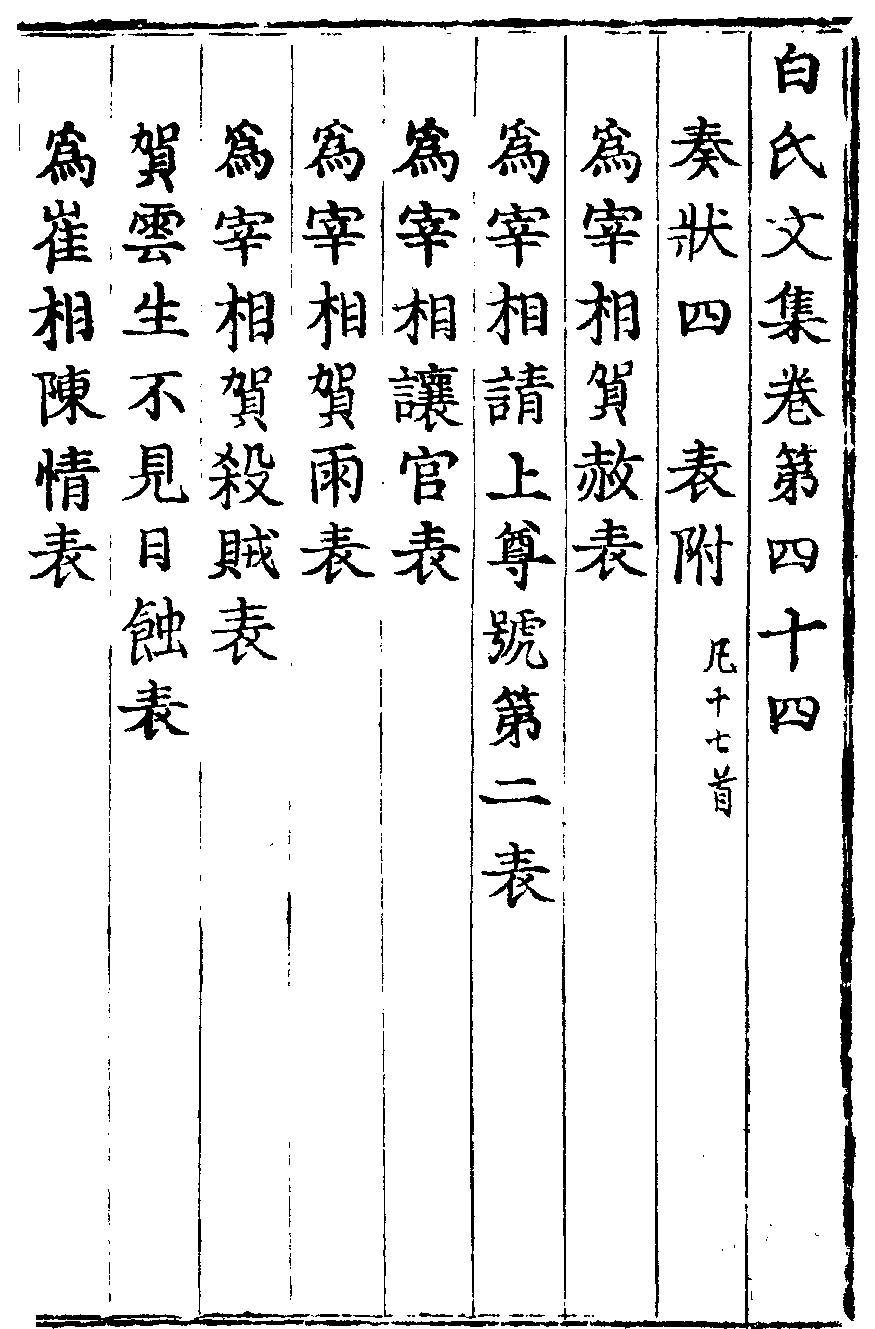 白氏文集卷第四十四
奏狀四　表附　凡十七首
為宰相賀赦表
為宰相請上尊號第二表
為宰相讓官表
為宰相賀雨表
為宰相賀殺賊表
賀雲生不見日蝕表
為崔相陳情表